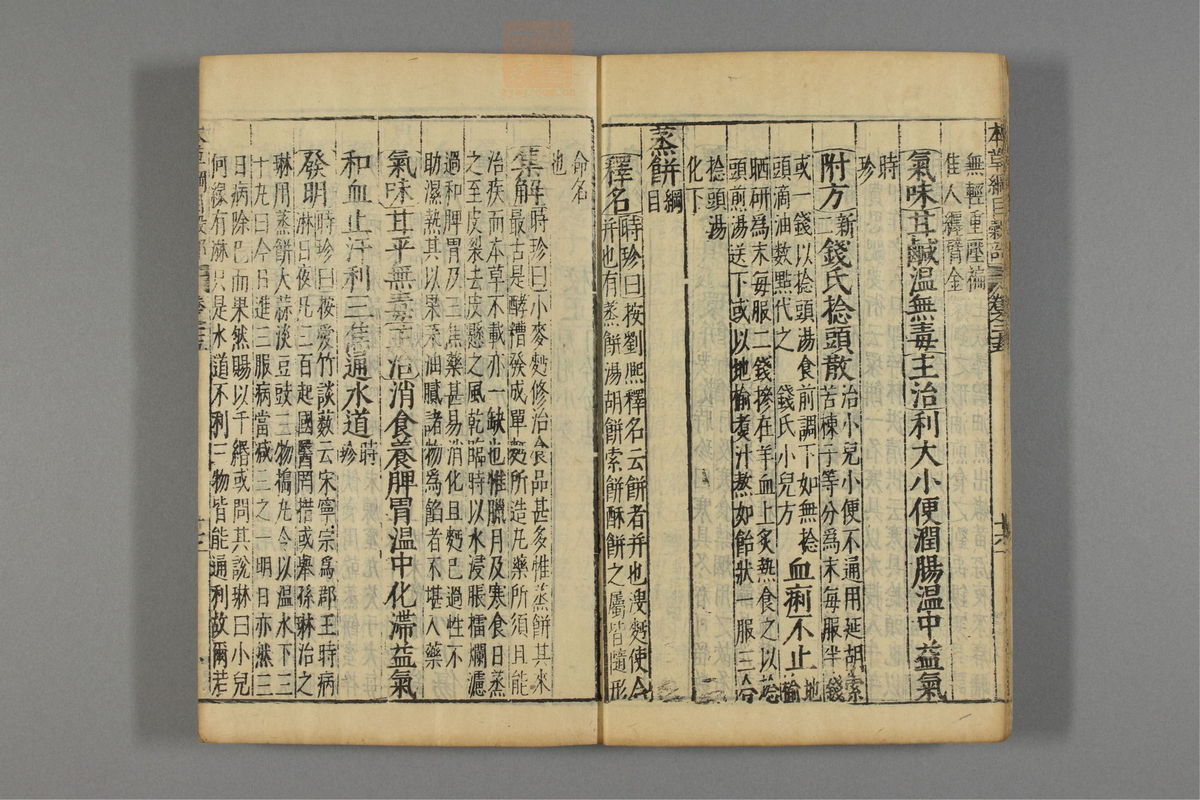 本草綱目穀部 卷之二十五
無輕重壓褊
佳人纏臂金
氣味甘鹹溫無毒主治利大小便潤腸溫中益氣
時
珍
附方新二錢氏捻頭散治小兒小便不通用延胡索
苦楝子等分爲末每服半錢
或一錢以捻頭湯食前調下如無捻
頭滴油數點代之 錢氏小兒方 血痢不止地榆
晒研爲末每服二錢摻在羊血上炙熱食之以捻
頭煎湯送下或以地榆煮汁熬如飴狀一服三合
捻頭湯
化下
蒸餅綱目
釋名時珍曰按劉熙釋名云餅者并也溲麪使合
并也有蒸餅湯胡餅索餅酥餅之屬皆隨形
命名
也
集解時珍曰小麥麪修治食品甚多惟蒸餅其來
最古是酵糟發成單麪所造丸藥所須且能
治疾而本草不載亦一缺也惟臘月及寒食日蒸
之至皮裂去皮懸之風乾臨時以水浸脹擂爛濾
過和脾胃及三焦藥甚易消化且麪已過性不
助濕熱其以果菜油膩諸物爲餡者不堪入藥
氣味甘平無毒主治消食養脾胃溫中化滯益氣
和血止汗利三焦通水道時珍
發明時珍曰按愛竹談藪云宋寧宗爲郡王時病
淋日夜凡三百起國醫罔措或舉孫琳治之
琳用蒸餅大蒜淡豆豉三物搗丸令以溫水下三
十丸曰今日進三服病當減三之一明日亦然三
日病除已而果然賜以千緡或問其說琳曰小兒
何緣有淋只是水道不利三物皆能通利故爾若